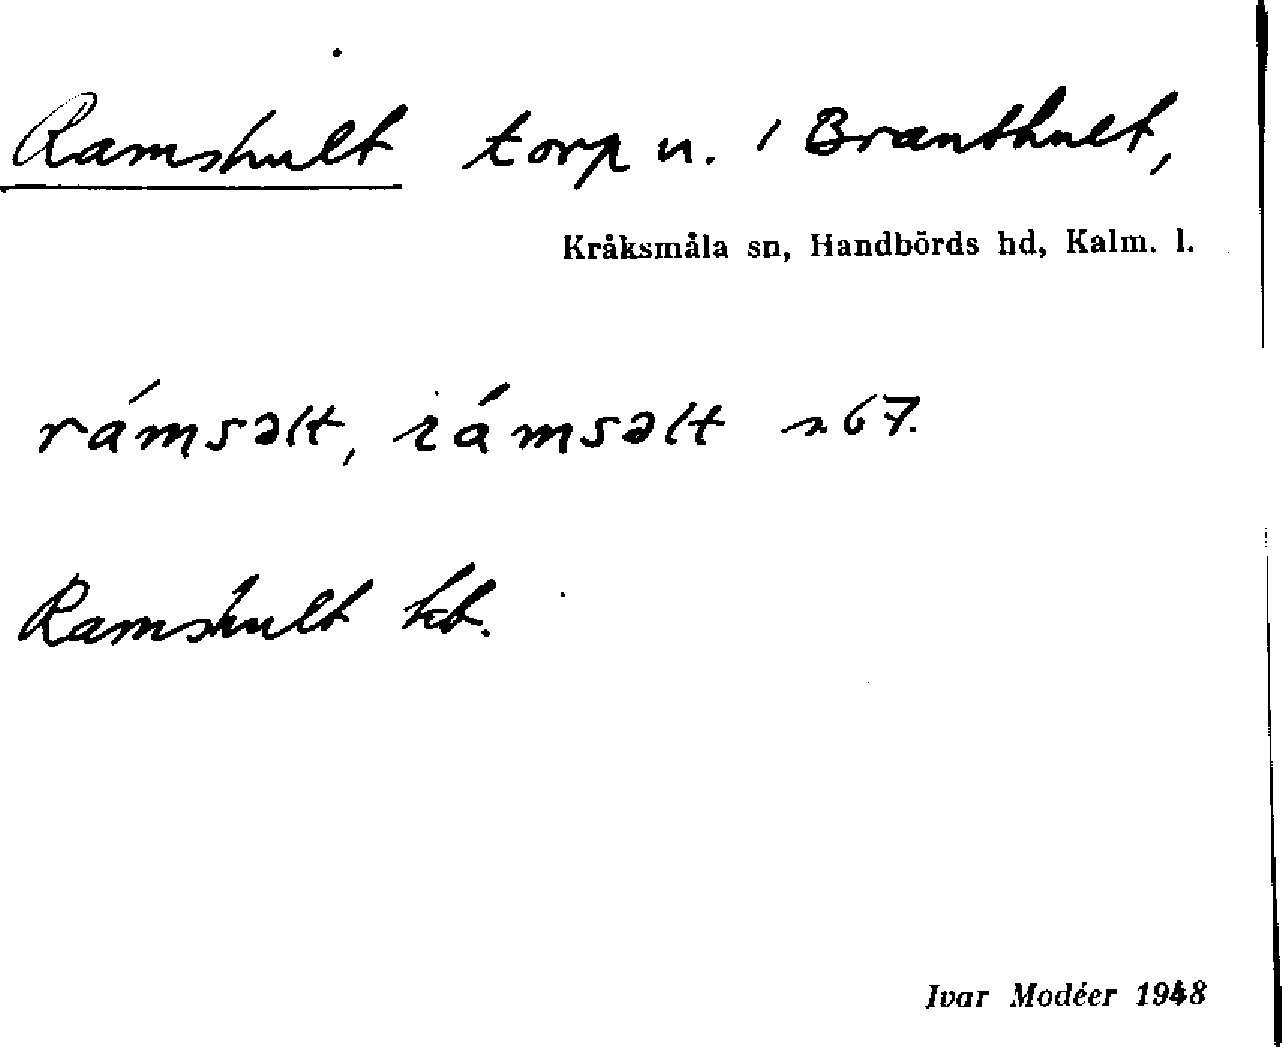 Ramshult torp u. 1 Branthult,
Kråksmåla sn, Handbörds hd, Kalm. l.
rámsəlt, ɹámsəlt n 67.
Ramshult kt.
Ivar Modéer 1948